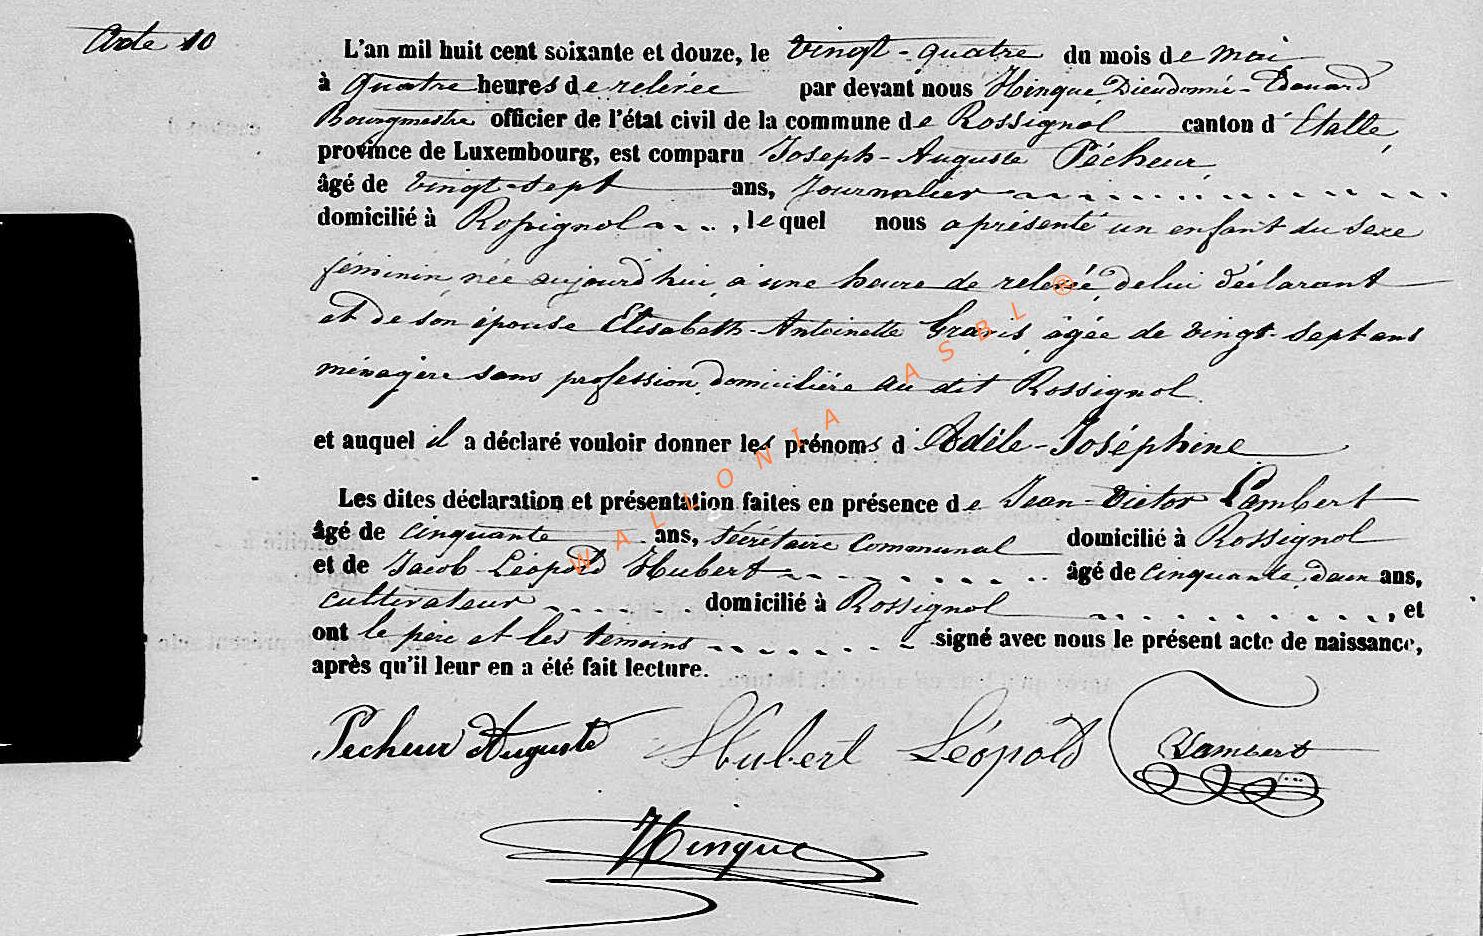 Acte 10
L'an mil huit cent soixante et douze, le vingt-quatre du mois de mai
à quatre heures de relevée par devant nous Hinque, Dieudonné-Edouard
Bourgmestre officier de l'état civil de la commune de Rossignol canton d'Etalle,
province de Luxembourg, est comparu Joseph-Auguste Pécheur,
âgé de vingt-sept ans, Journalier
domicilié à Rossignol, lequel nous a présenté un enfant du sexe
féminin, née aujourd'hui, à une heure de relevée, de lui déclarant
et de son épouse Elisabeth-Antoinette Gravis, âgée de vingt-sept ans
ménagère sans profession, domiciliére au dit Rossignol.
et auquel il a déclaré vouloir donner les prénoms d'Adèle-Joséphine
Les dites déclaration et présentation faites en présence de Jean-Victor Lambert
âgé de cinquante ans, Sécrétaire Communal domicilié à Rossignol
et de Jacob-Léopold Hubert âgé de cinquante deux ans,
cultivateur domicilié à Rossignol, et
ont le père et les témoins signé avec nous le présent acte de naissance,
après qu'il leur en a été fait lecture.
Pecheur Auguste Hubert Léopold Lambert
Hinque
WALLONIA ASBL ®